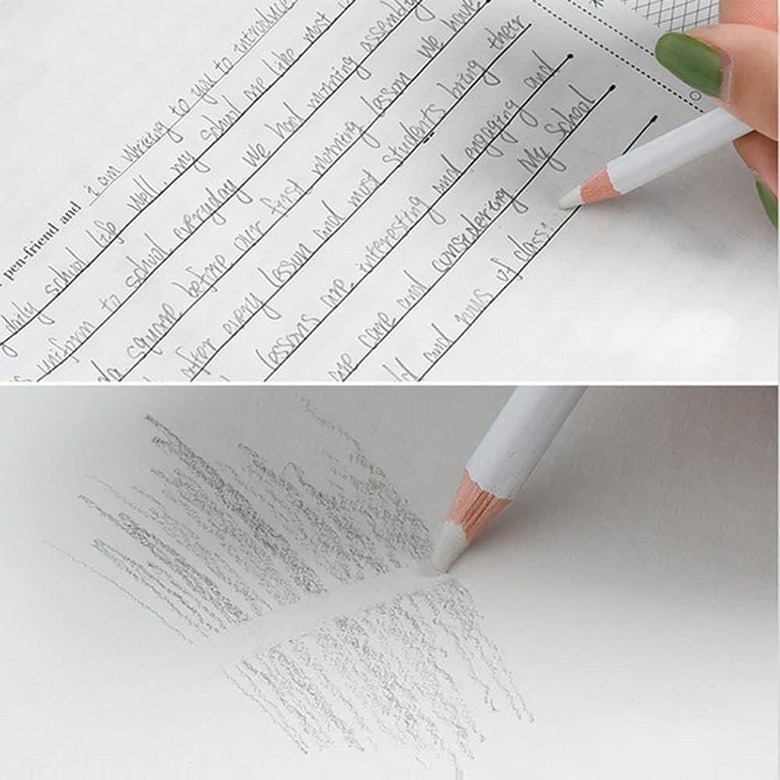 pen-friend and i am writing to you to introduce
daily school life well. my school are like most
uniform to school everyday we had morning assembly
square before our first morning lesson we have
after every lesson and most students bring their
lessons are interesting and engaging and
are care and considering My school
and rows of class